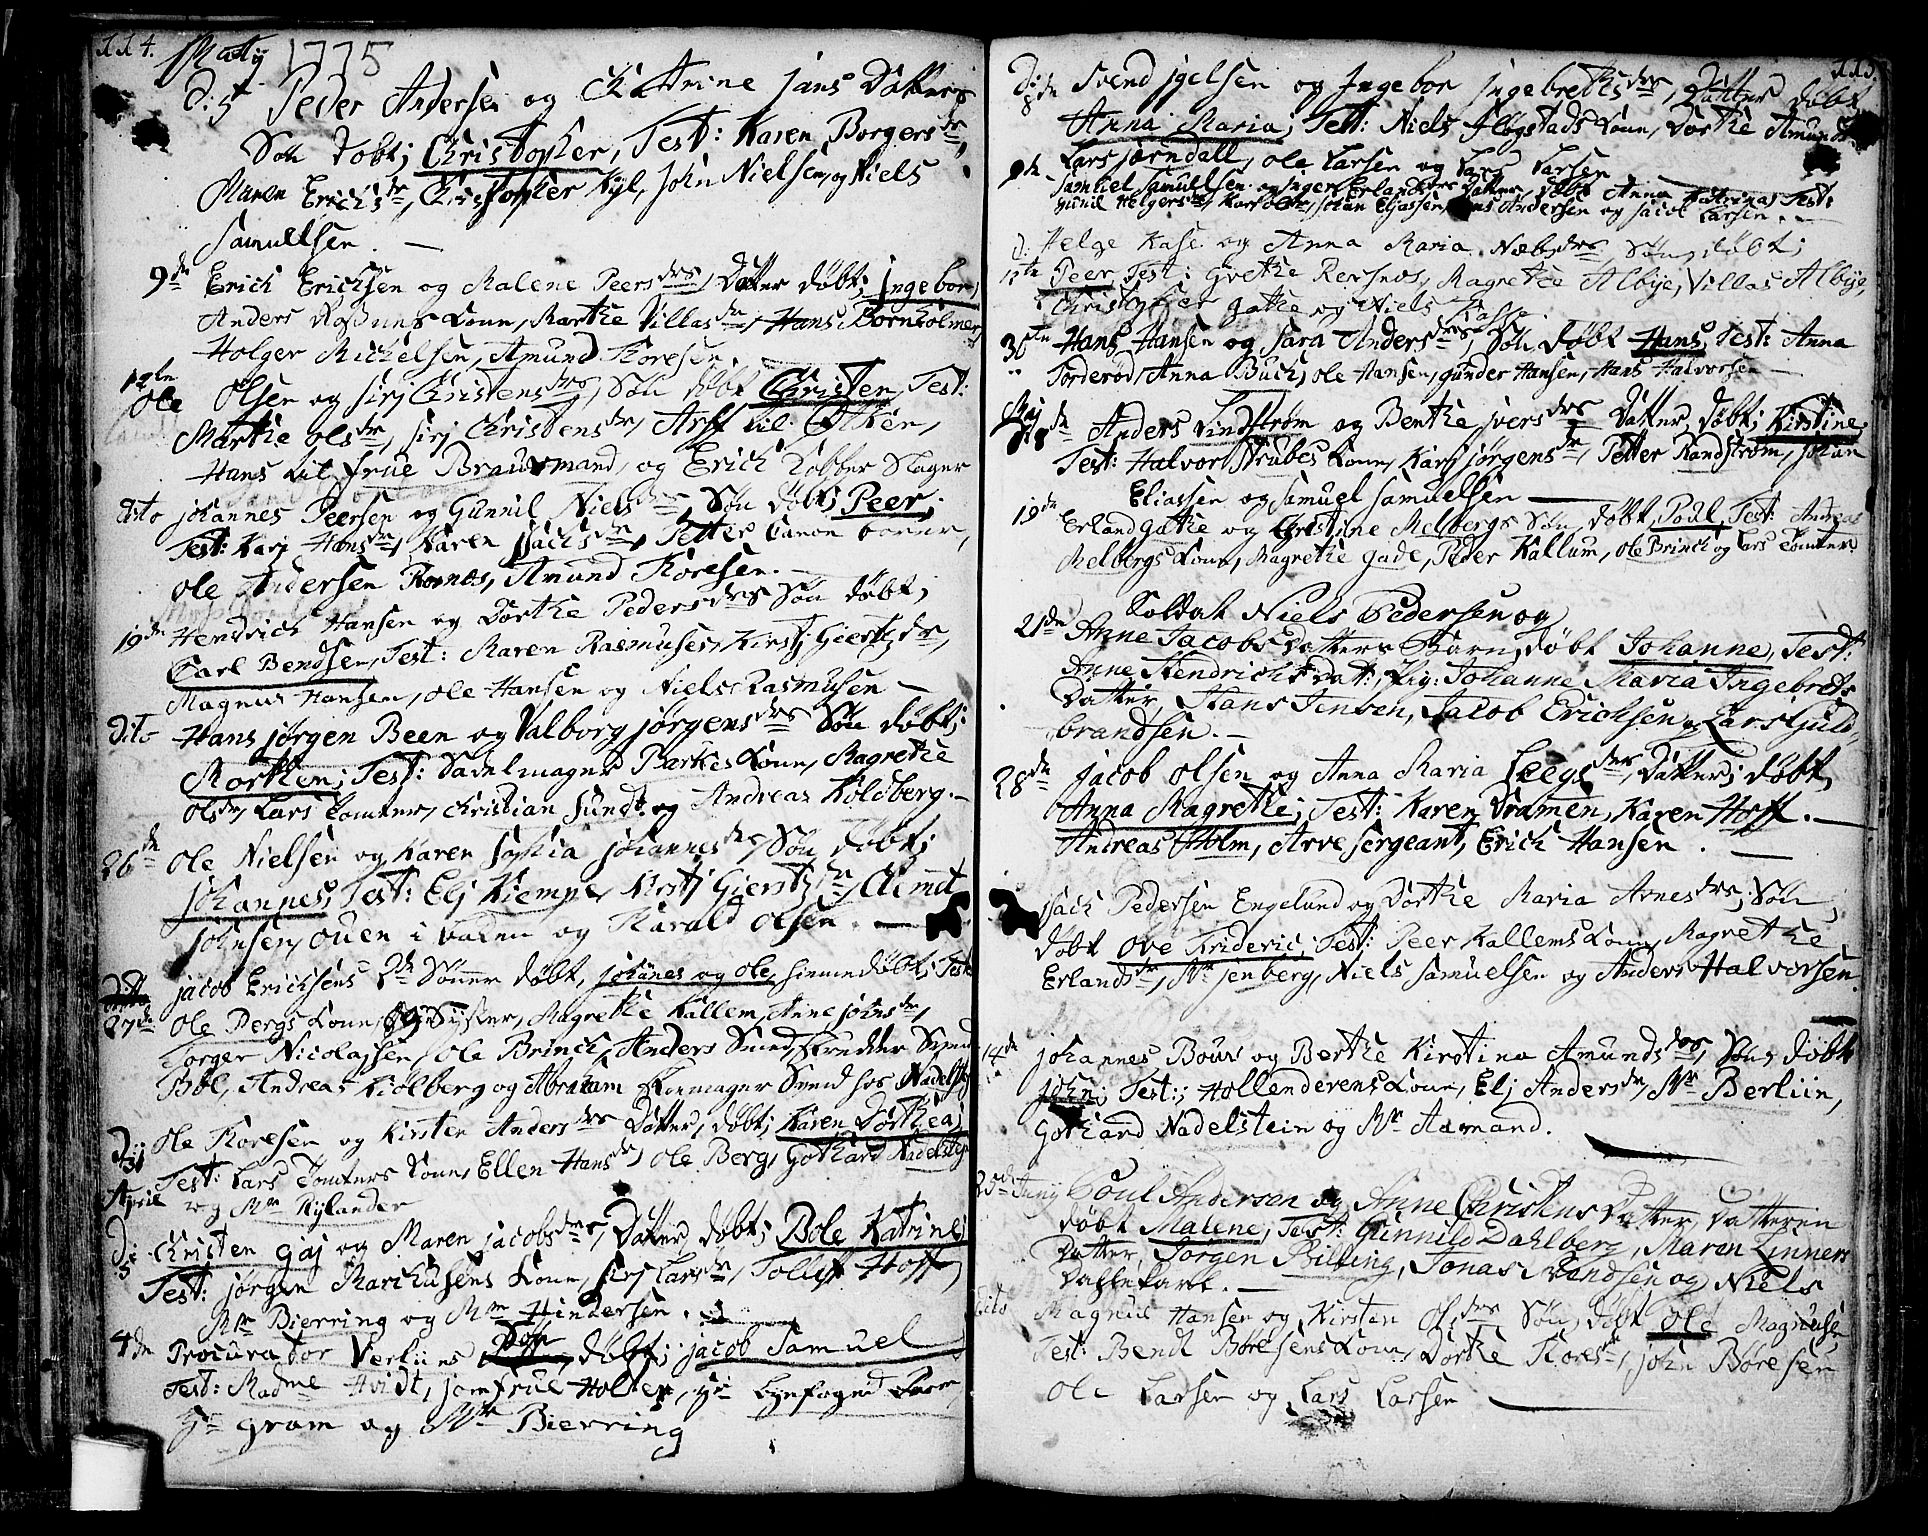 114. Martij 1775
D: 5t Peder Andersen og Cathrine Jans Datters
Søn døbt; Christopher, Test: Karen Borgersdr,
Maren Erichsdr, Christopher Kyl, John Nielsen, og Niels
Samuelsen. —
9de Erich Erichsen og Malene Peersdrs, Datter døbt; Ingebor;
Anders Koune, Marthe Villasdr, Hans Bornholmer,
Holger Michelsen, Amund Thoresen.
12te Ole Olsen og Sirj Christensdrs, Søn døbt Christen, Test:
Marthe Olsdr, Sirj Christensdr, Arff til
Hans til frue Brandmand, og Erich Kobber Slager
dito Johannes Peersen og Gunnil Nielsdrs, Søn døbt; Peer;
Test: Karj Hansdr, Karen Isachsdr, Petter Canon borer,
Ole Andersen Rosnæs, Amund Thoresen. —
19de Hendrich Hansen og Dorthe Pedersdrs Søn døbt;
Carl Bendsen, Test: Maren Rasmuses, Kirstj Giertzdr,
Magnus Hansen, Ole Hansen og Niels Rasmusen —
Dito Hans Jørgen Been og Valborg Jørgensdrs Søn døbt;
Morthen; Test: Sadelmager Barkes Koune, Magrethe
Olsdr, Lars Tomter, Christian Sundt og Andreas Kolberg. —
26de Ole Nielsen og Karen Sophia Johannesdr, Søn døbt;
Johannes, Test: Elj Kiempe, Kirstj Giertzdr,
Johnsen, ouen i bakken og Harald Olsen. —
27de Jacob Erichsens 2de Sønner døbt, Johannes og Ole, hiemmedøbt; Test:
Ole Bergs Koune, Syster, Magrethe Kallem, Anne Johnsdr,
Torger Nicolassen, Ole Brinch, Anders Smed,
Bøl, Andreas Kiolberg og Abraham Svend hos Nadelsty
D: 31 Ole Thoresen og Kirsten Andersdrs Datter, døbt; Karen Dorthea;
Test: Lars Tomters Koune, Ellen Hansdr, Ole Berg, Gothard Nadelstejn
April og Mr Rylander
D: 3 Christen Gaj og Maren Jacobsdrs, Datter, døbt; Bole Katrine;
Test: Jørgen Marchusens Koune, Sirj Larsdr, Tollef Hoff,
Mr Bierring og Mr Hindersen.
4de Procurator Verlüns Søn, døbt; Jacob Samuel
Test: Madme Hvidt, Jomfrue Holter, Hr Byefoged
Hr Gram og Mr Bierring
115.
D: 8de Svend Igelsen og Ingebor Ingebrethsdrs, Datter døbt
Anna Maria; Test: Niels Koune, Dorthe Amundsdr
Lars Jerndall, Ole Larsen og Lars Larsen
9de Samuel Samuelsen og Inger Erlandsdrs Datter, døbt Anna Katrina Test:
Gunil Helgersdr, Johan Eljassen, Hans Andersen og Jacob Larsen. —
D: Helge Kase og Anna Maria Næbsdrs, Søn, døbt;
Peer, Test: Grethe Rersnos, Magrethe Albye, Villas Albye,
Christopher Gathe og Niels Kasse.
30te Hans Hansen og Sara Andersdrs, Søn døbt Hans, Test: Anna
Torderød, Anna Buch, Ole Hansen, Gunder Hansen, Hans Halvorsen —
Maj 18de Anders Lindstrøm og Benthe Iversdrs Datter, døbt; Kirstine,
Test: Halvor Strubes Koune, Karj Jørgensdr, Petter Randstrøm, Johan
Eliassen og Samuel Samuelsen —
19de Erland Gathe og Christine Melbergs Søn, døbt, Poul, Test: Andreas
Melbergs Koune, Magrethe Gade, Peder Kallum, Ole Brinch og Lars Tomter
Soldat Niels Pedersen og
21de Anne Jacobs Datters Barn, døbt Johanne, Test:
Anne Hendrichs Dat:, Pig: Johanne Maria Ingebrets
Datter, Hans Jensen, Jacob Erichsen og Lars Guld-
brandsen. —
28de Jacob Olsen og Anna Maria Leegsdrs, Datter; døbt
Anna Magrethe; Test: Karen Dramen, Karen Hoff. —
Andreas Holm, Arve Sergeant, Erich Hansen. —
Isach Pedersen Engelund og Dorthe Maria Arnesdrs; Søn,
døbt Ove Frideric; Test: Peer Kallems Koune, Magrethe
Erlandsdr, Mr Jenberg, Niels Samuelsen og Anders Halvorsen.
14de Johannes Bours og Berthe Kirstina Amundsdrs, Søn, døbt
John; Test:, Hollenderens Koune, Elj Andersdr, Mr Berliin,
Gothard Nadelstein og Mr Aamand.
Juny Poul Andersen og Anne Christens Datter, Datteren
døbt Malene, Test: Gunnild Dahlberg, Maren Linners
Datter, Jørgen Billing, Jonas Svendsen og Niels
—
Dito Magnus Hansen og Kirsten Olsdrs Søn, døbt Ole Magnusen,
Test: Bendt Børesens Koune, Dorthe Thoresdr, John Børesen
Ole Larsen og Lars Larsen —